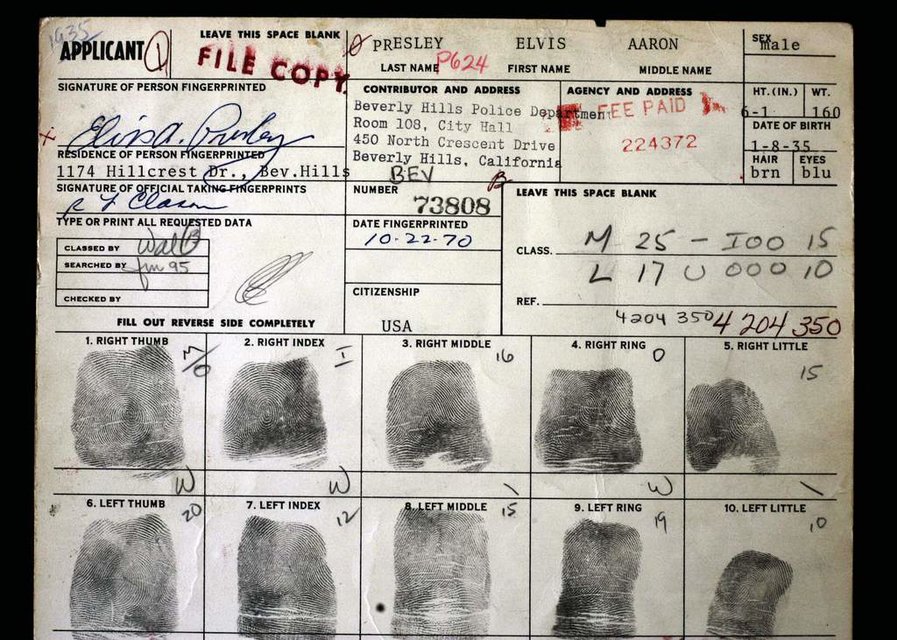 1935
APPLICANT 1
LEAVE THIS SPACE BLANK
FILE COPY
PRESLEY ELVIS AARON
LAST NAME P624 FIRST NAME MIDDLE NAME
SEX
male
SIGNATURE OF PERSON FINGERPRINTED
x Elvis A. Presley
CONTRIBUTOR AND ADDRESS
Beverly Hills Police Department
Room 108, City Hall
450 North Crescent Drive
Beverly Hills, California
BEV
AGENCY AND ADDRESS
FEE PAID
224372
HT. (IN.) WT.
6-1 160
DATE OF BIRTH
1-8-35
HAIR EYES
brn blu
RESIDENCE OF PERSON FINGERPRINTED
1174 Hillcrest Dr., Bev.Hills
SIGNATURE OF OFFICIAL TAKING FINGERPRINTS
NUMBER
73808
LEAVE THIS SPACE BLANK
TYPE OR PRINT ALL REQUESTED DATA
CLASSED BY
SEARCHED BY
CHECKED BY
DATE FINGERPRINTED
10-22-70
CITIZENSHIP
USA
CLASS. M 25 - IOO 15
L 17 U 000 10
REF.
4204 350 4 204 350
FILL OUT REVERSE SIDE COMPLETELY
1. RIGHT THUMB
2. RIGHT INDEX I
3. RIGHT MIDDLE 16
4. RIGHT RING O
5. RIGHT LITTLE
15
W W \ W \
6. LEFT THUMB 20
7. LEFT INDEX 12
8. LEFT MIDDLE 15
9. LEFT RING 19
10. LEFT LITTLE
10